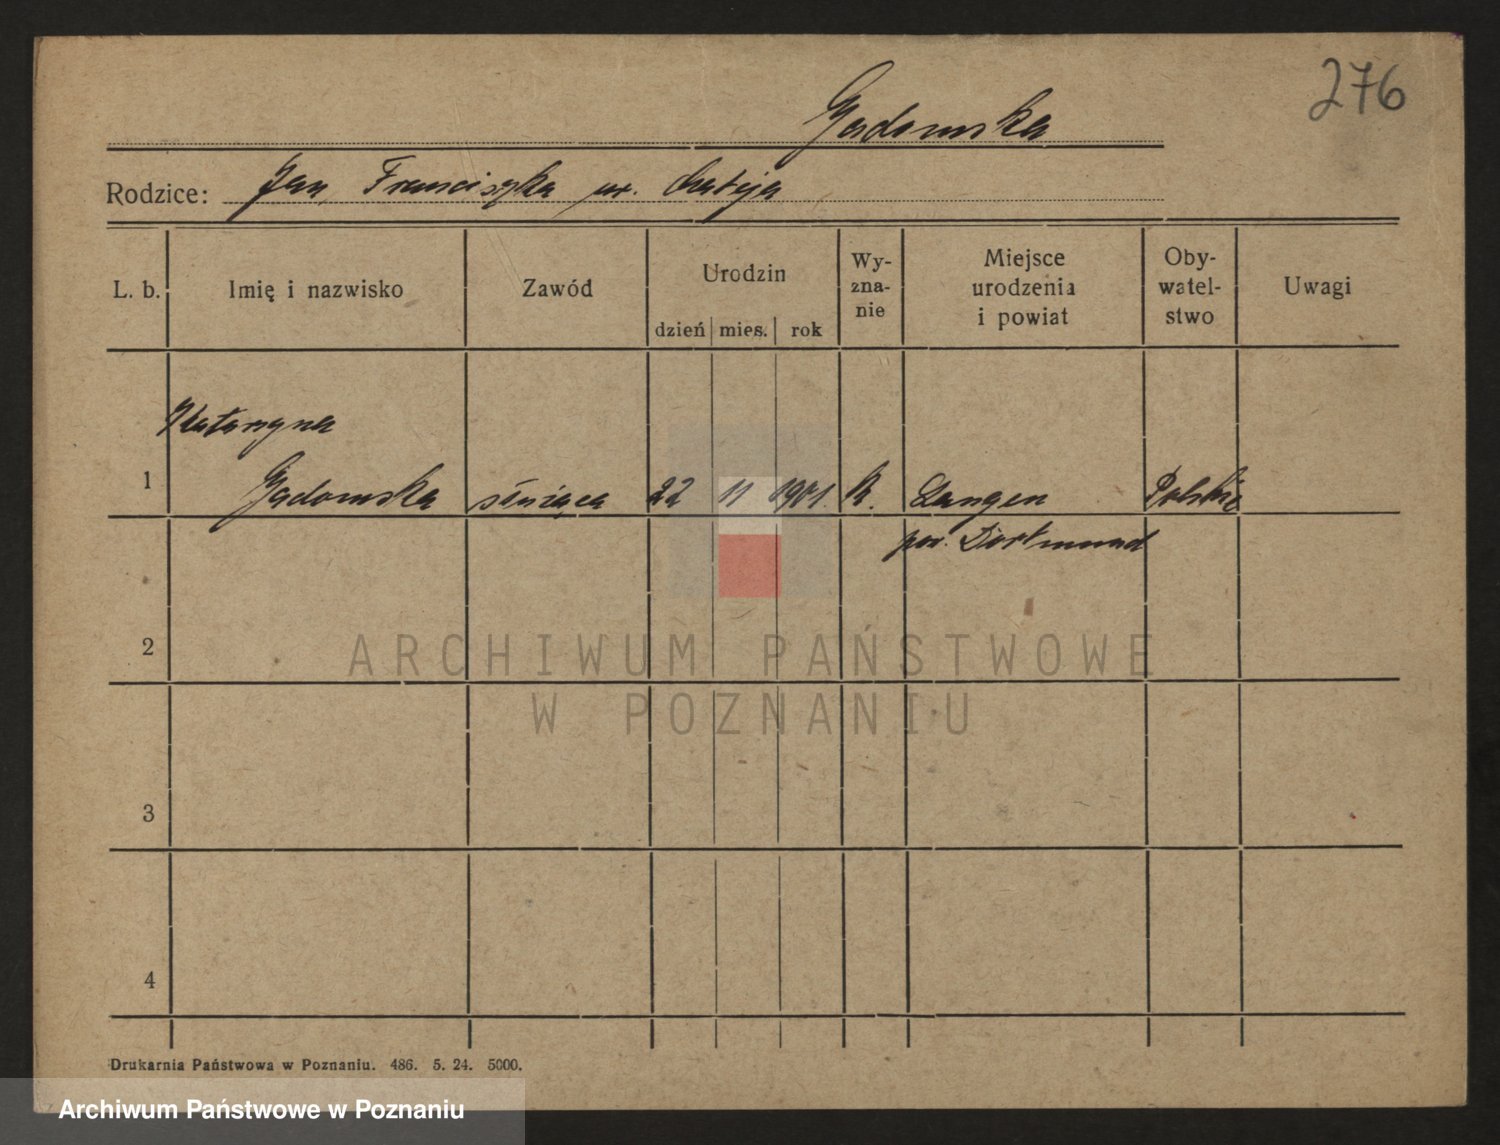 276
Gadomska
Rodzice: Jan, Franciszka ur. Matyja
L. b. Imię i nazwisko Zawód Urodzin dzień mies. rok Wy-zna-nie Miejsce urodzenia i powiat Oby-watel-stwo Uwagi
Katarzyna
1 Gadomska służąca 22 11 1901. R. Langen Polskie
pow. Dortmund
2
ARCHIWUM PAŃSTWOWE
W POZNANIU
3
4
Drukarnia Państwowa w Poznaniu. 486. 5. 24. 5000.
Archiwum Państwowe w Poznaniu